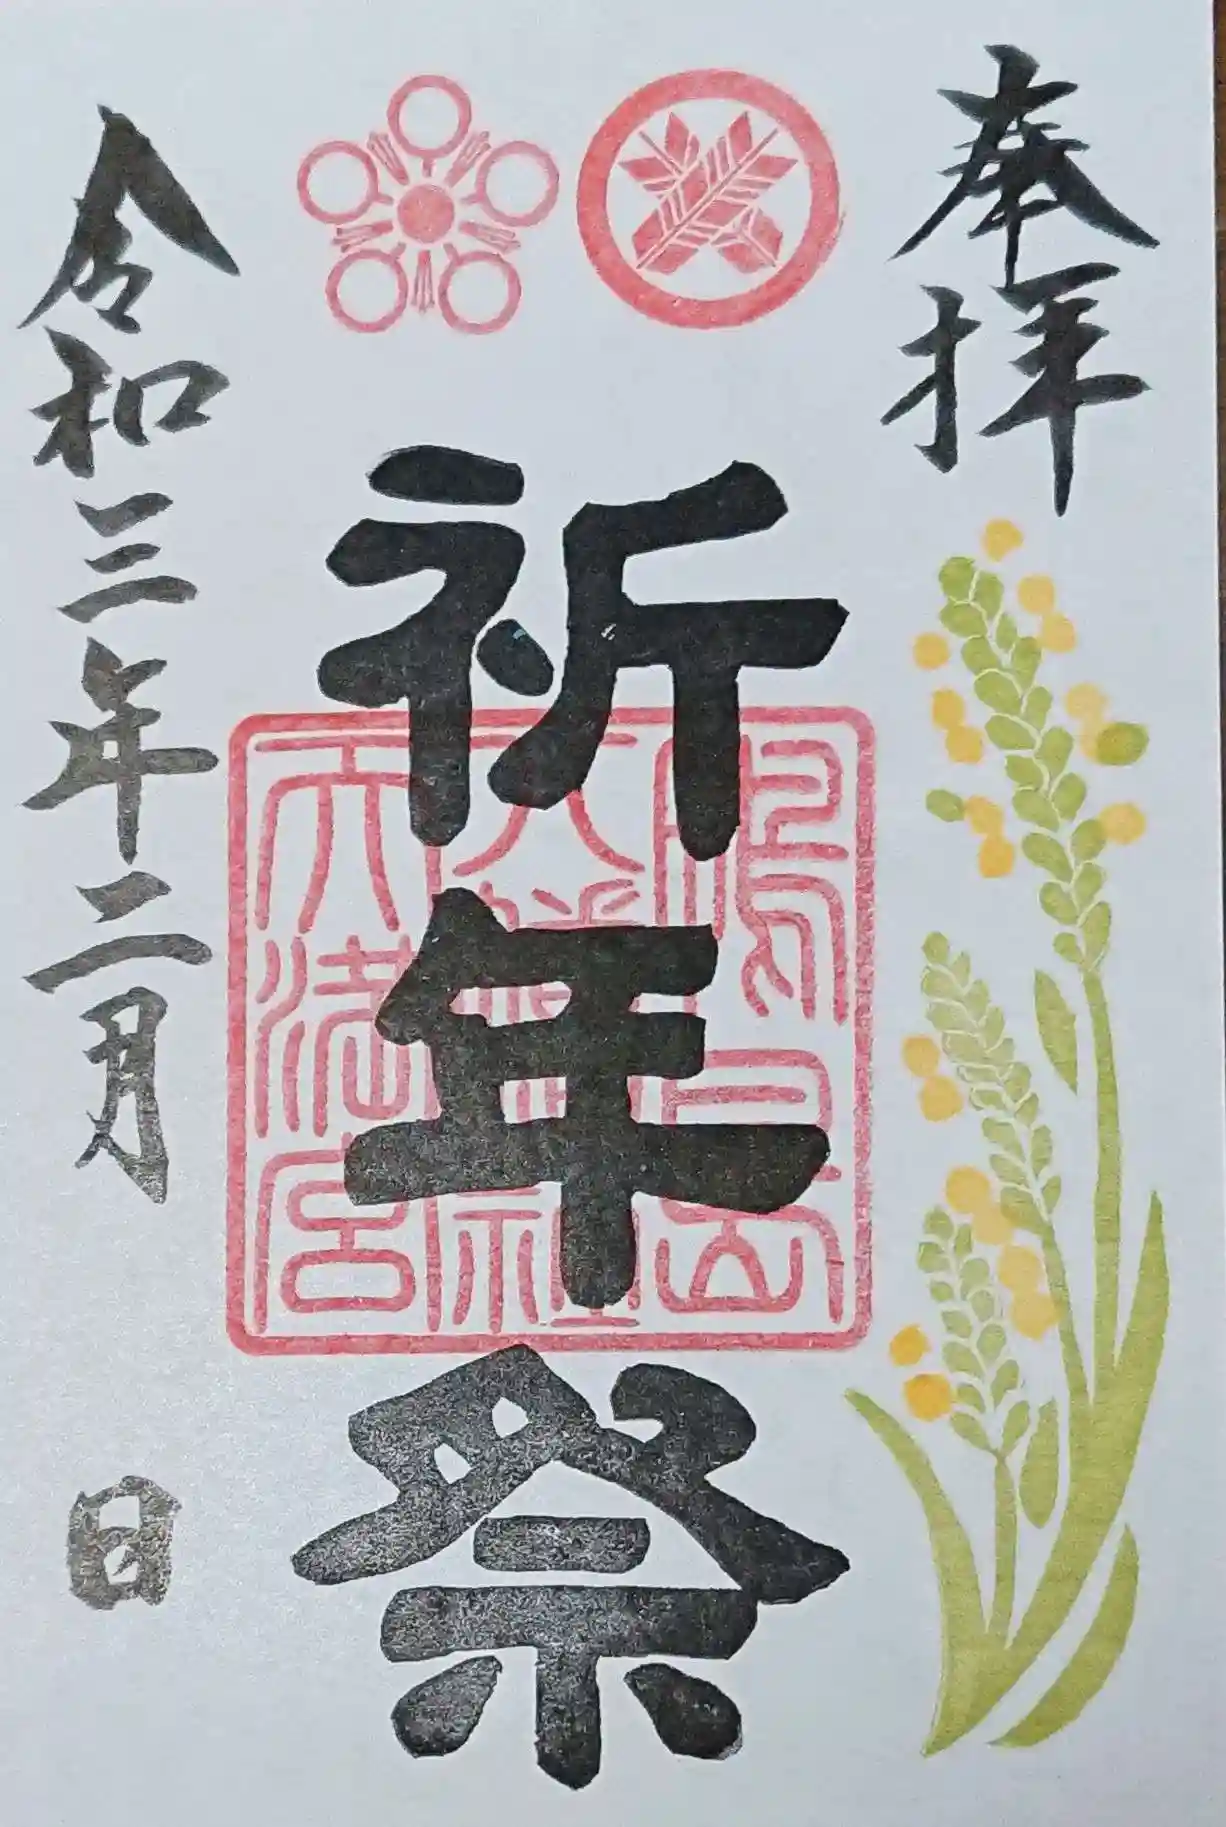 奉拝
祈年祭
天満宮
令和三年二月　日